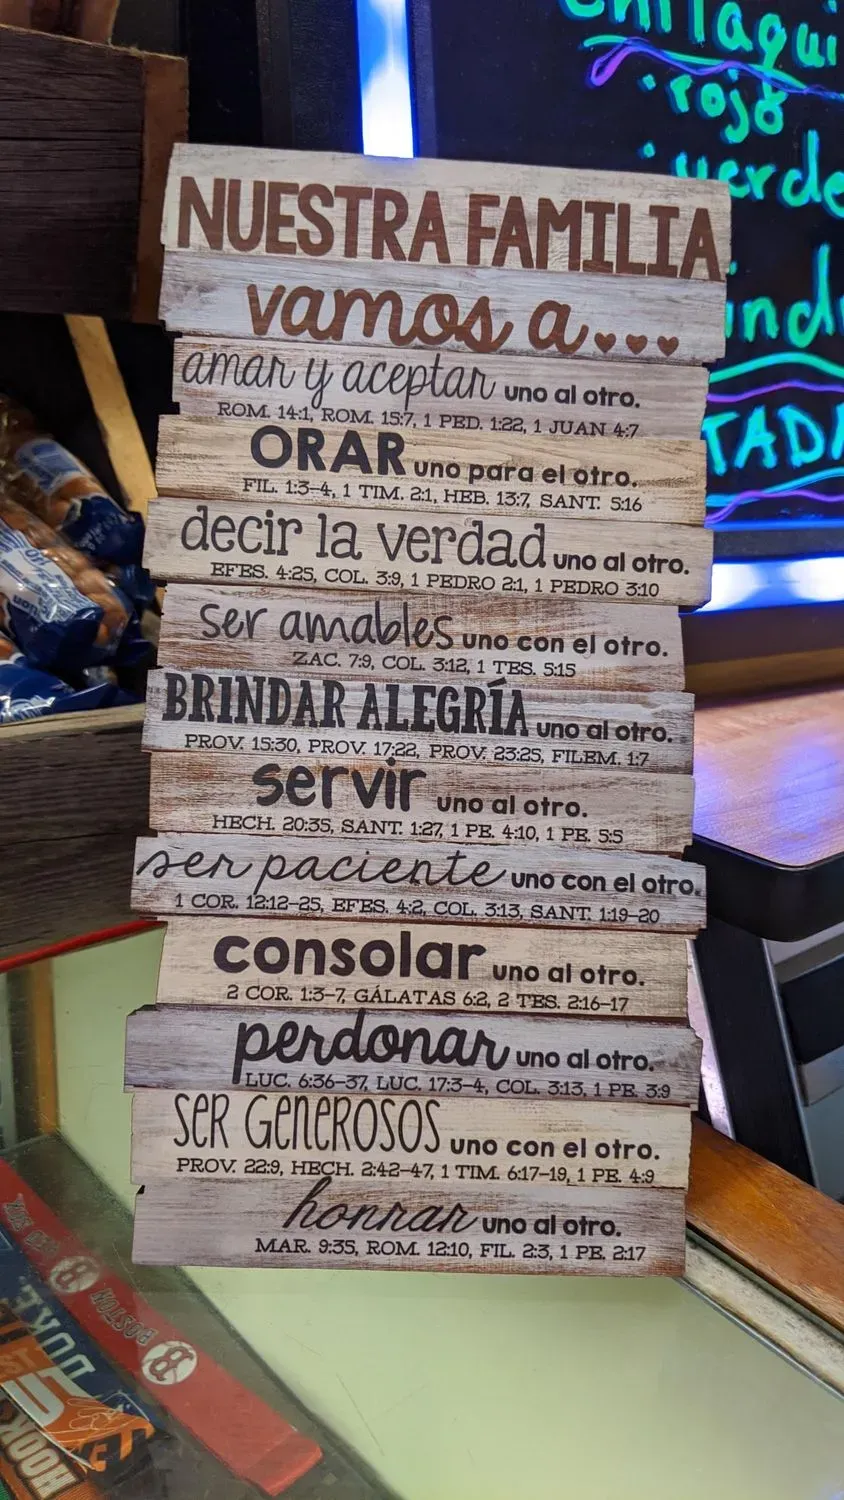 NUESTRA FAMILIA
vamos a...
amar y aceptar uno al otro.
ROM. 14:1, ROM. 15:7, 1 PED. 1:22, 1 JUAN 4:7
ORAR uno para el otro.
FIL. 1:3-4, 1 TIM. 2:1, HEB. 13:7, SANT. 5:16
decir la verdad uno al otro.
EFES. 4:25, COL. 3:9, 1 PEDRO 2:1, 1 PEDRO 3:10
ser amables uno con el otro.
ZAC. 7:9, COL. 3:12, 1 TES. 5:15
BRINDAR ALEGRÍA uno al otro.
PROV. 15:30, PROV. 17:22, PROV. 23:25, FILEM. 1:7
servir uno al otro.
HECH. 20:35, SANT. 1:27, 1 PE. 4:10, 1 PE. 5:5
ser paciente uno con el otro.
1 COR. 12:12-25, EFES. 4:2, COL. 3:13, SANT. 1:19-20
consolar uno al otro.
2 COR. 1:3-7, GÁLATAS 6:2, 2 TES. 2:16-17
perdonar uno al otro.
LUC. 6:36-37, LUC. 17:3-4, COL. 3:13, 1 PE. 3:9
SER GENEROSOS uno con el otro.
PROV. 22:9, HECH. 2:42-47, 1 TIM. 6:17-19, 1 PE. 4:9
honrar uno al otro.
MAR. 9:35, ROM. 12:10, FIL. 2:3, 1 PE. 2:17
chilaqui
rojo
verde
RED SOX
B BOSTON B
DUKE
HOOK